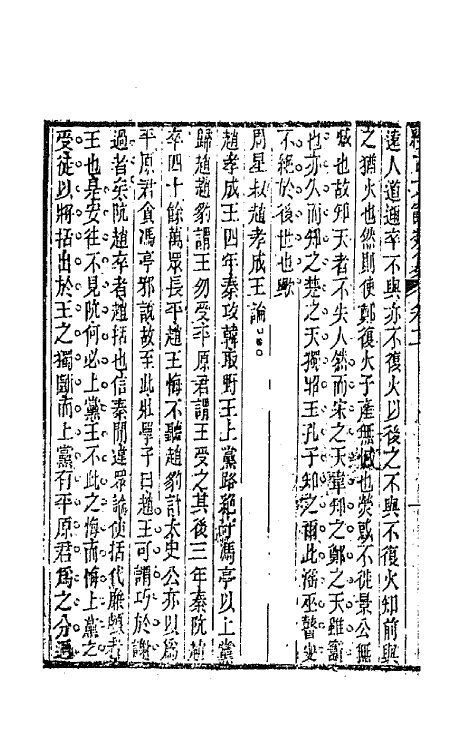 遠人道邇卒不與亦不復火以後之不與不復火知前與
之猶火也然則使鄭復火子產無慽也熒惑不徙景公無
慽也故知天者不失人然而宋之天韋知之鄭之天雖竈
也亦久而知之楚之天獨邪王孔子知之爾此瘖巫瞽史
不絕於後世也歟
周星叔趙孝成王論
趙孝成王四年秦攻韓取野王上黨路絕守馮亭以上黨
歸趙趙豹謂王勿受平原君謂王受之其後三年秦阬趙
卒四十餘萬眾長平趙王悔不聽趙豹計太史公亦以為
平原君貪馮亭邪說故至此壯學子曰趙王可謂巧於謝
過者矣阬趙卒者趙括也信秦間違眾論使括代廉頗者
王也是安往不見阬何必上黨王不此之悔而悔上黨之
受徒以將括出於王之獨斷而上黨有平原君為之分過